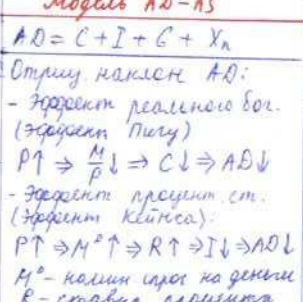 Модель AD-AS
AD = C + I + G + Xn
Отриц. наклон AD:
- Эффект реального бог.
(Эффект Пигу)
P↑ ⇒ M/P↓ ⇒ C↓ ⇒ AD↓
- Эффект процент. ст.
(Эффект Кейнса):
P↑ ⇒ Mᴰ↑ ⇒ R↑ ⇒ I↓ ⇒ AD↓
Mᴰ - номин спрос на деньги
R - ставка процента